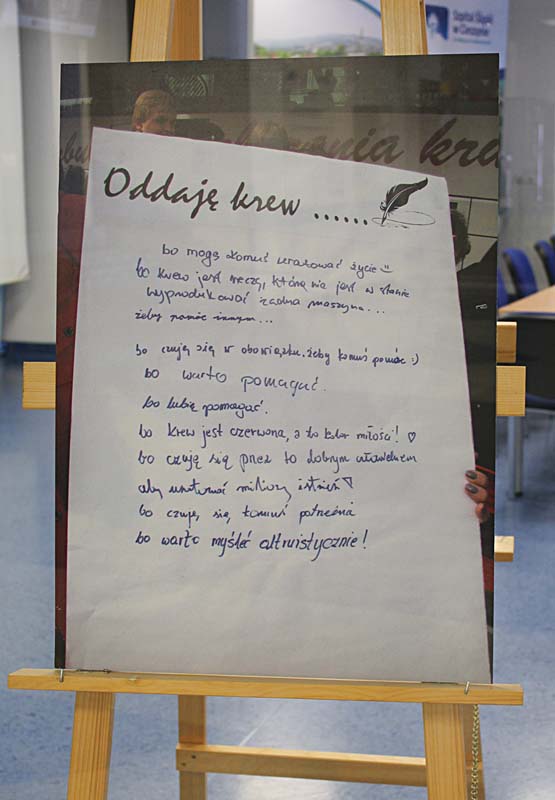 Szpital Śląski
w Cieszynie
Oddaję krew ......
bo mogę komuś uratować życie :)
bo krew jest rzeczą, której nie jest w stanie
wyprodukować żadna maszyna...
żeby pomóc innym...
bo czuję się w obowiązku, żeby komuś pomóc :)
bo warto pomagać.
bo lubię pomagać.
bo krew jest czerwona, a to kolor miłości! ♡
bo czuję się przez to dobrym człowiekiem
aby uratować miliony istnień ♡
bo czuję się komuś potrzebna
bo warto myśleć altruistycznie!